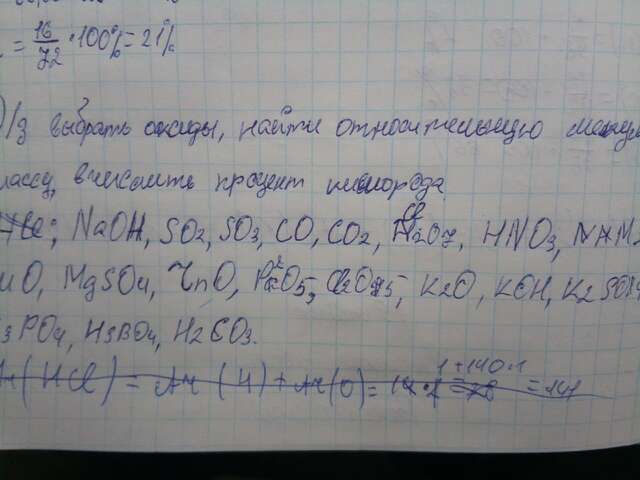 = 16/72 · 100% = 21%
)/з выбрать оксиды, найти относительную
массу, вычислить процент кислорода.
HCl; NaOH, SO2, SO3, CO, CO2, Cl2O7, HNO3,
O, MgSO4, ZnO, P2O5, K2O, KOH, K2SO4
3PO4, H3BO4, H2CO3.
(HCl) = Ar(H) + Ar(O) = 1+140·1 = 141